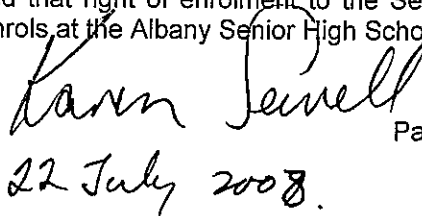 that right of enrolment to the Se
nrols at the Albany Senior High Scho
Karen Sewell
Pa
22 July 2008.